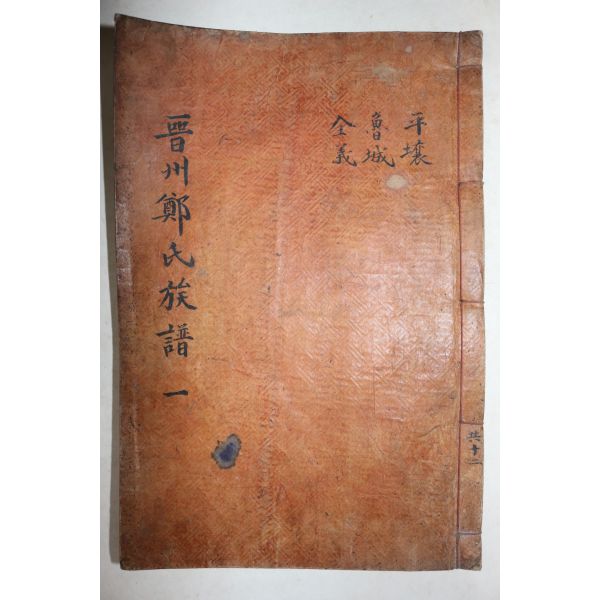 平壤
魯城
全義
晉州鄭氏族譜 一
共十二